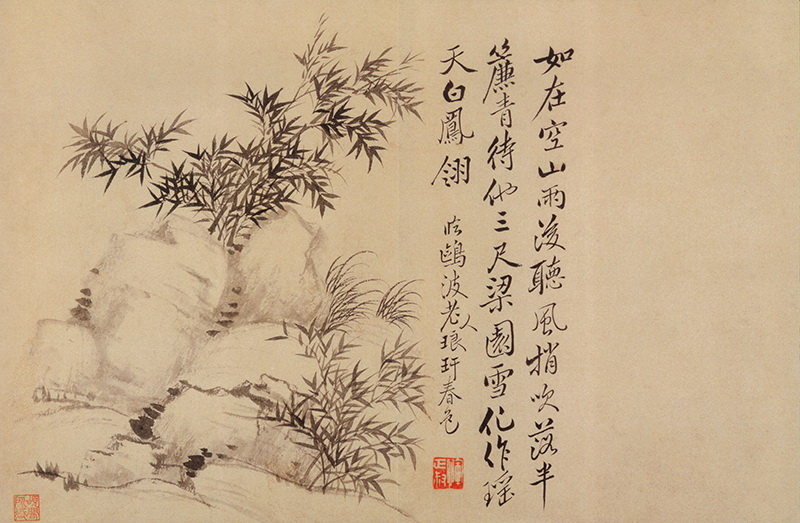 如在空山雨後聽風梢吹落半
簾青待他三尺梁園雪化作瑤
天白鳳翎
临鷗波老人琅玕春色
正叔